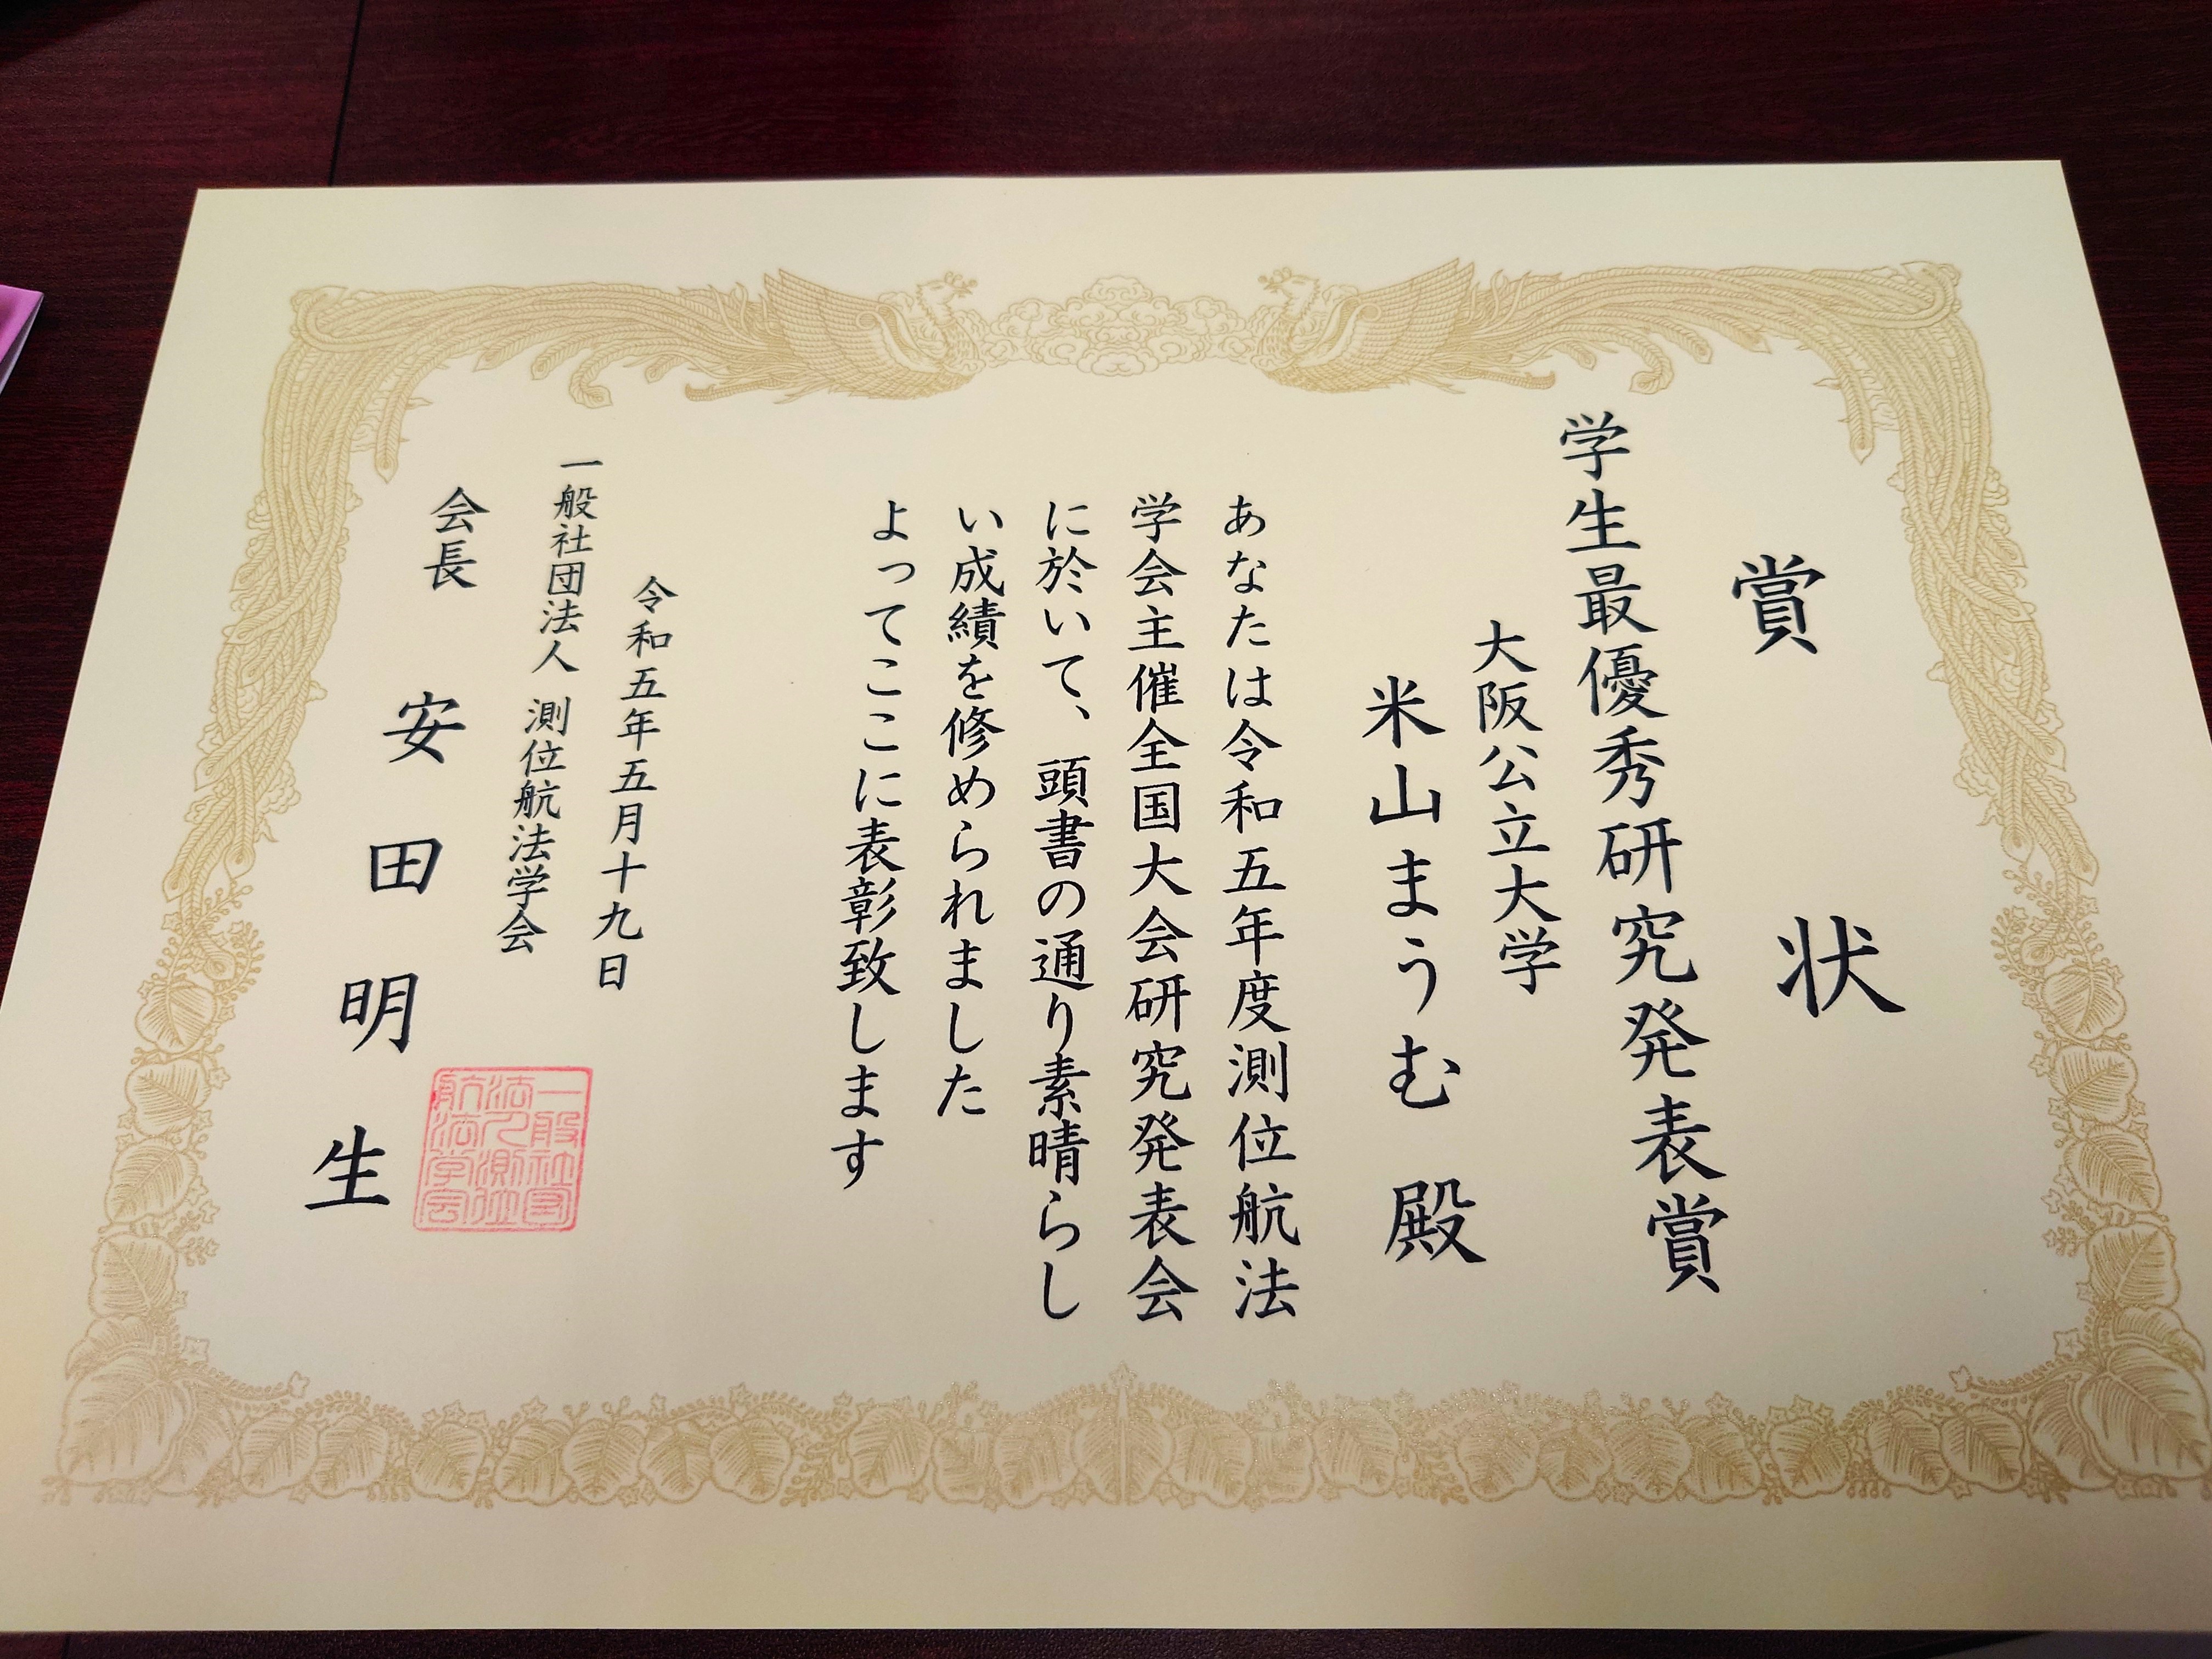 賞状
学生最優秀研究発表賞
大阪公立大学
米山まうむ 殿
あなたは令和五年度測位航法
学会主催全国大会研究発表会
に於いて、頭書の通り素晴らし
い成績を修められました
よってここに表彰致します
令和五年五月十九日
一般社団法人 測位航法学会
会長 安田明生
一般社団
法人測位
航法学会